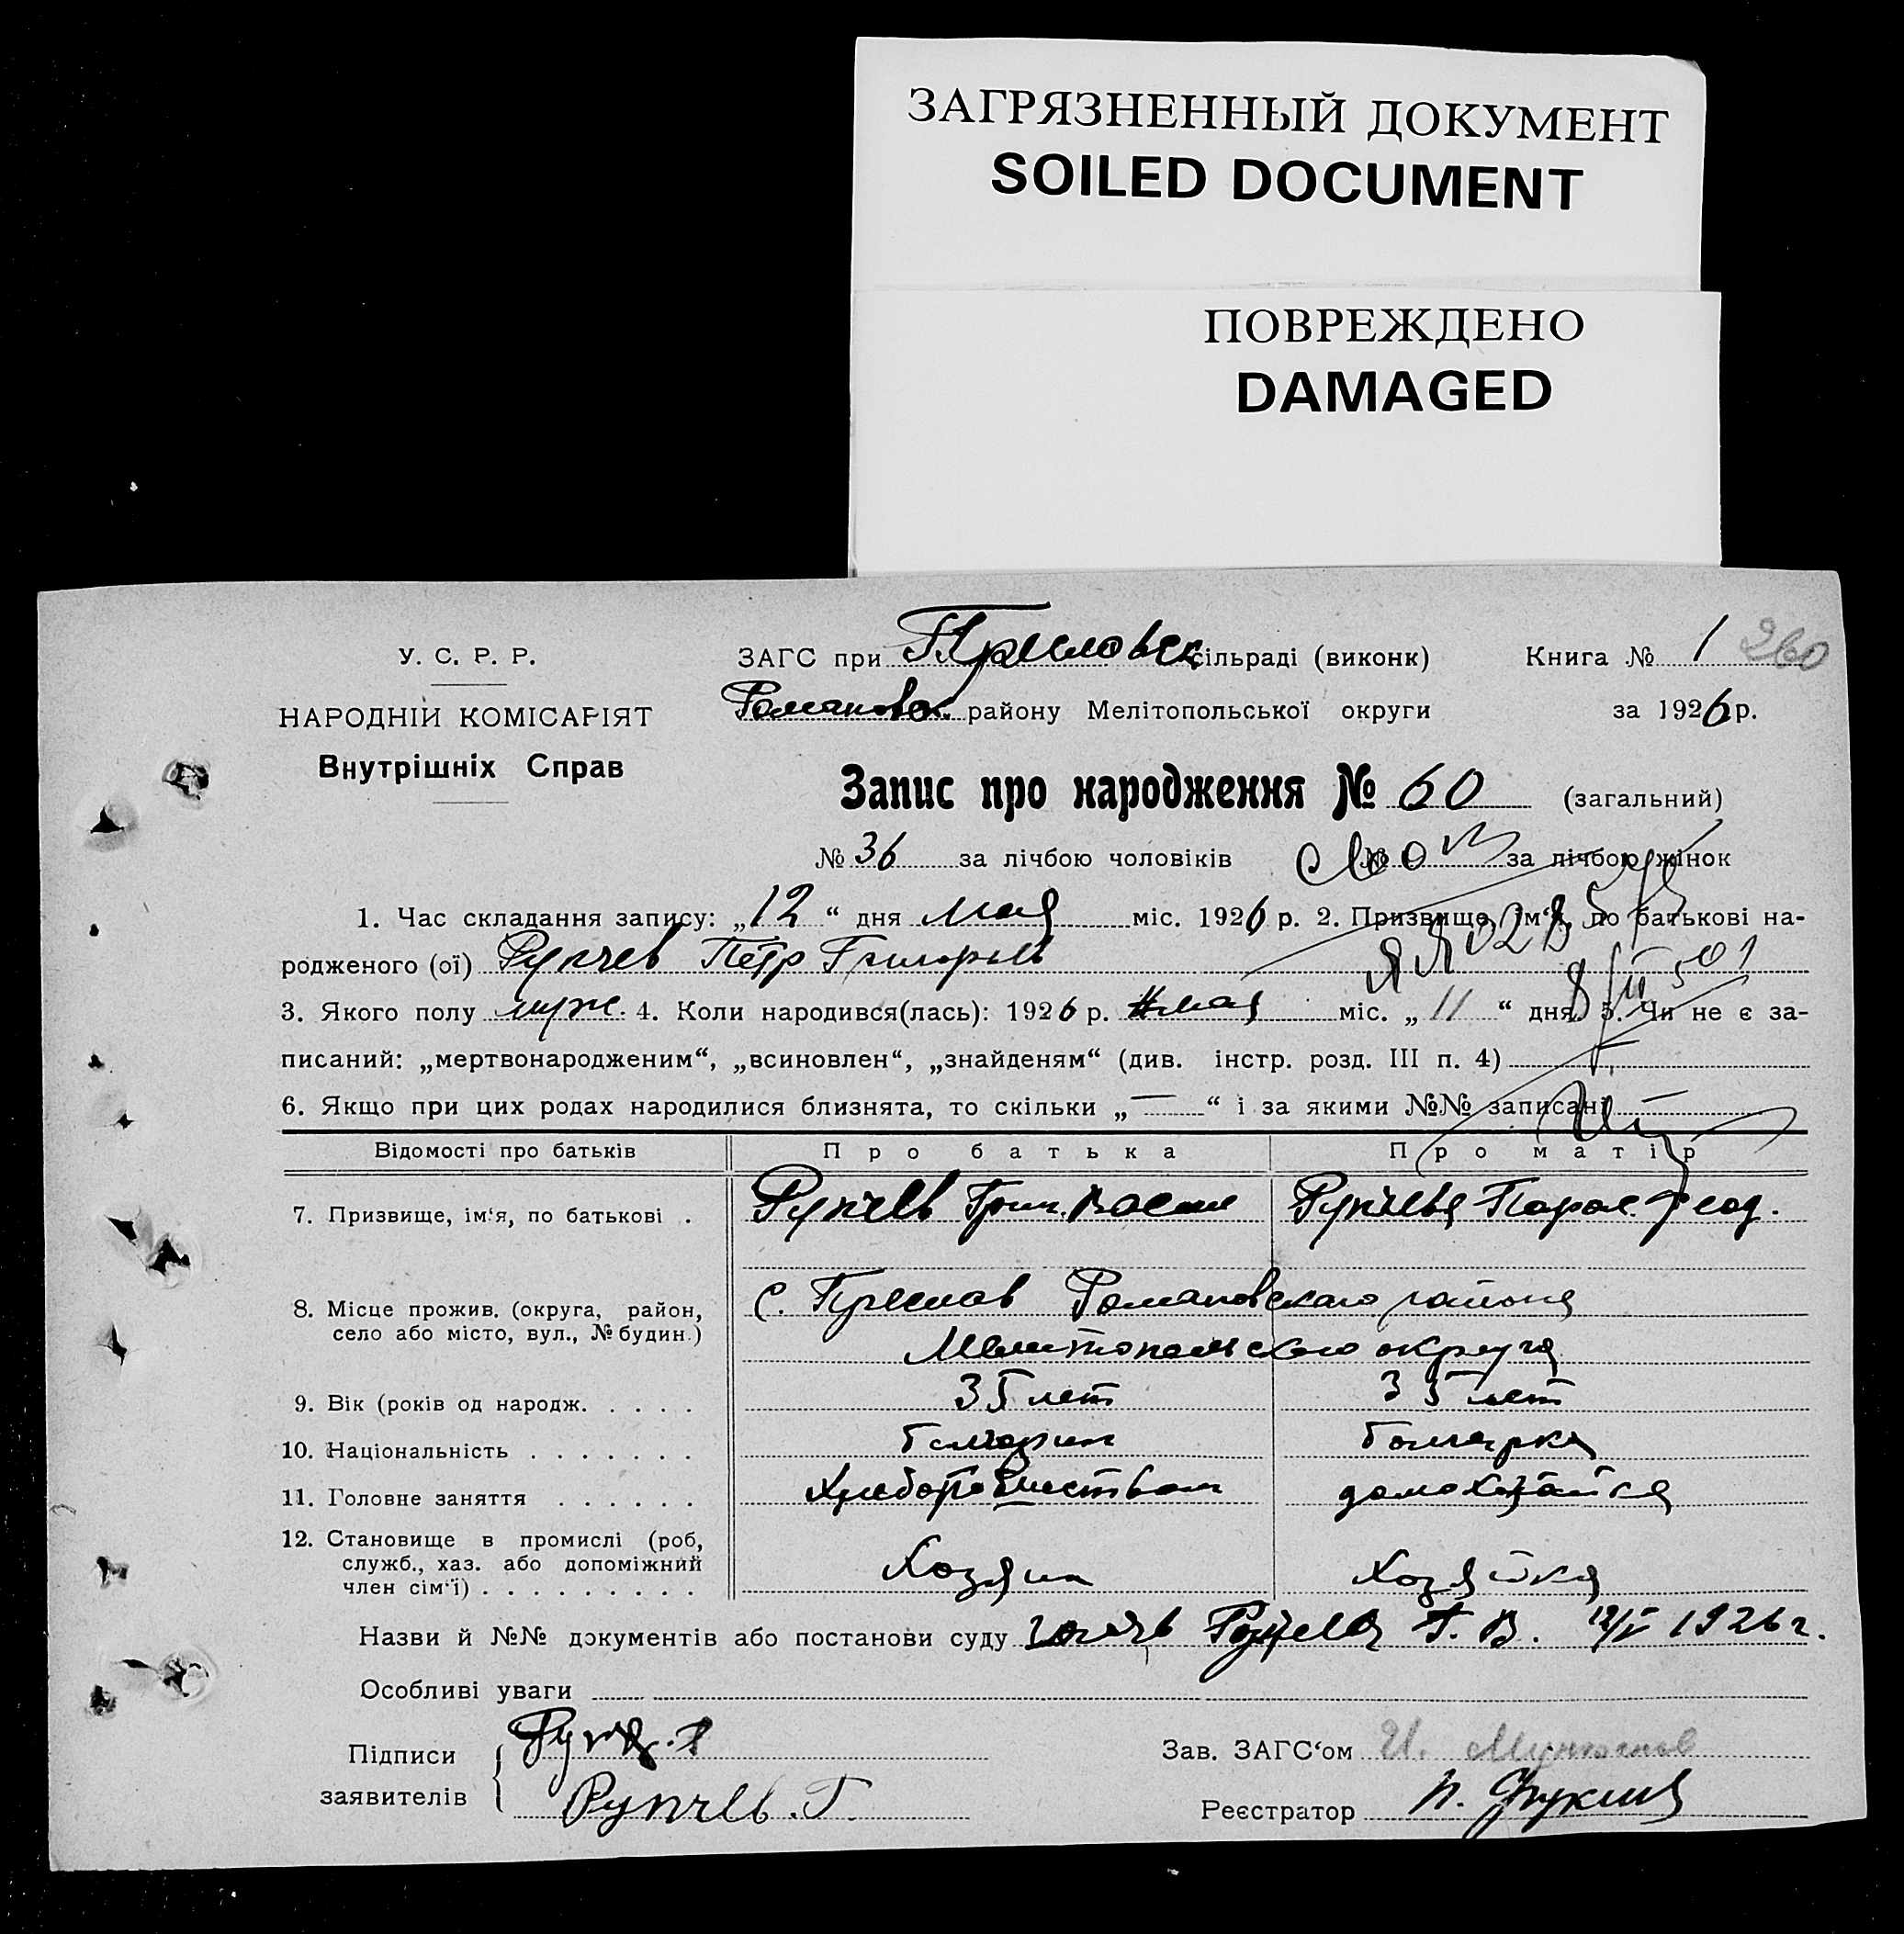 ЗАГРЯЗНЕННЫЙ ДОКУМЕНТ
SOILED DOCUMENT
ПОВРЕЖДЕНО
DAMAGED
У. С. Р. Р.
НАРОДНІЙ КОМІСАРІЯТ
Внутрішніх Справ
ЗАГС при Преславск сільраді (виконк) Книга № 1 260
Романовск. району Мелітопольської округи за 1926 р.
Запис про народження № 60 (загальний)
№ 36 за лічбою чоловіків № за лічбою жінок
1. Час складання запису: „12“ дня мая міс. 1926 р. 2. Призвище, ім‘я, по батькові на-
родженого (ої) Рупчев Пётр Григорьев
3. Якого полу муж. 4. Коли народився(лась): 1926 р. мая міс. „11“ дня. 5. Чи не є за-
писаний: „мертвонародженим“, „всиновлен“, „знайденям“ (див. інстр. розд. III п. 4)
6. Якщо при цих родах народилися близнята, то скільки „—“ і за якими №№ записані —
Відомості про батьків Про батька Про матір
7. Призвище, ім‘я, по батькові . Рупчев Григ. Васил Рупчева Параск. Феод.
8. Місце прожив. (округа, район, с. Преслав Романовскаго района
село або місто, вул., № будин.) Мелитопольскаго округа
9. Вік (років од народж. . . . . 35 лет 35 лет
10. Національність . . . . . . . Болгарин Болгарка
11. Головне заняття . . . . . . Хлебопашеством домохозайка
12. Становище в промислі (роб,
служб., хаз. або допоміжний Хозяин Хозяйка
член сім‘ї) . . . . . . . . .
Назви й №№ документів або постанови суду Рупчева Г. В. 12/V 1926 г.
Особливі уваги
Підписи
заявителів Рупчев. Г.
Зав. ЗАГС‘ом И.
Реєстратор